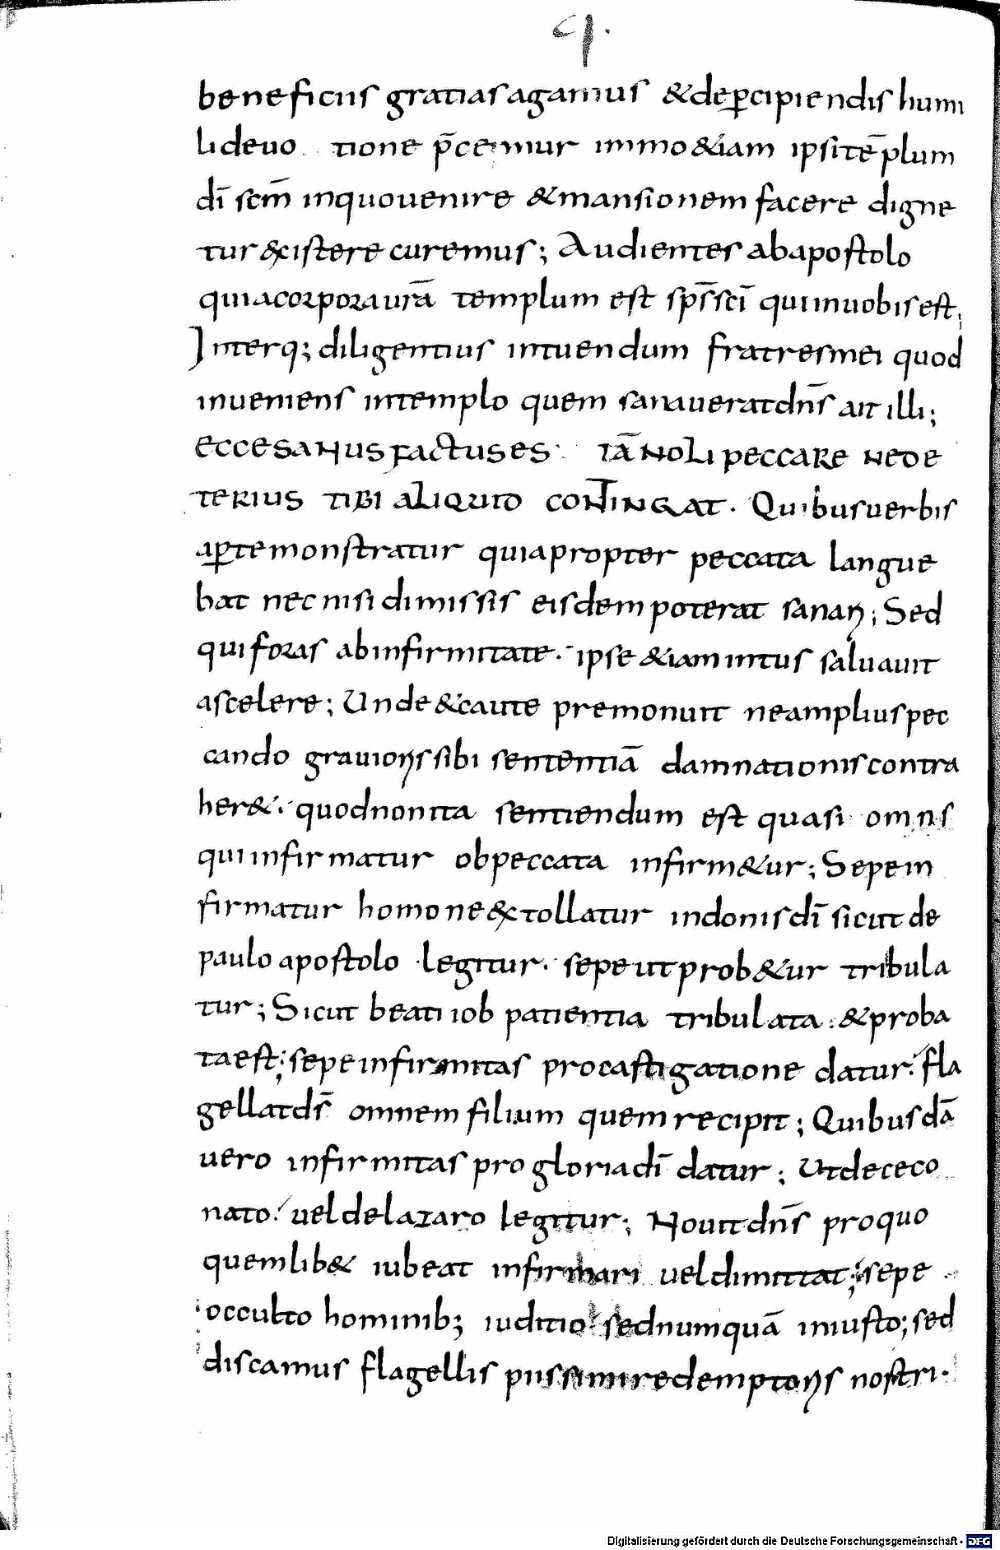 q.
beneficiis gratias agamus & de p̲cipiendis humi
li deuo tione p̄cemur immo &iam ipsi tēplum
dī sc̄m in quo uenire & mansionem facere digne
tur &xistere curemus; Audientes ab apostolo
quia corpora urā templum est sp̄s sc̄i qui in uobis est;
Interq; diligentius intuendum fratres mei quod
inueniens in templo quem sanauerat dn̄s ait illi;
ECCE SANUS FACTUS ES IĀ NOLI PECCARE NE DE
TERIUS TIBI ALIQUID CONTINGAT. Quibus uerbis
ap̲te monstratur quia propter peccata langue
bat nec nisi dimissis eisdem poterat sanari; Sed
qui foras ab infirmitate. ipse &iam intus saluauit
a scelere; Unde & caute premonuit ne amplius pec
cando grauioris sibi sententiā damnationis contra
her&. quod non ita sentiendum est quasi omns
qui infirmatur ob peccata infirm&ur; Sepe in
firmatur homo ne &xtollatur in donis dī sicut de
paulo apostolo legitur. sepe ut prob&ur tribula
tur; Sicut beati iob patientia tribulata. & proba
ta est; sepe infirmitas pro castigatione datur. fla
gellat ds̄ omnem filium quem recipit; Quibusdā
uero infirmitas pro gloria dī datur; Ut de ceco
nato. uel de lazaro legitur; Nouit dn̄s pro quo
quemlib& iubeat infirmari uel dimittat; sepe
occulto hominib; iuditio sed numquā iniusto; sed
discamus flagellis piissimi redemptoris nostri.
Digitalisierung gefördert durch die Deutsche Forschungsgemeinschaft - DFG